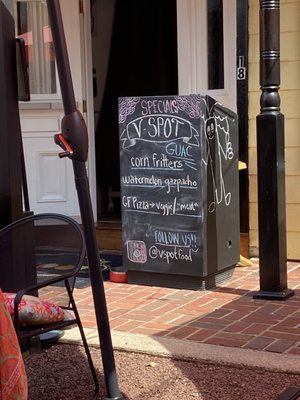 SPECIALS
V-SPOT
GUAC
corn fritters
watermelon gazpacho
GF Pizza → veggie/"meat"
FOLLOW US!!
@vspotfood
18